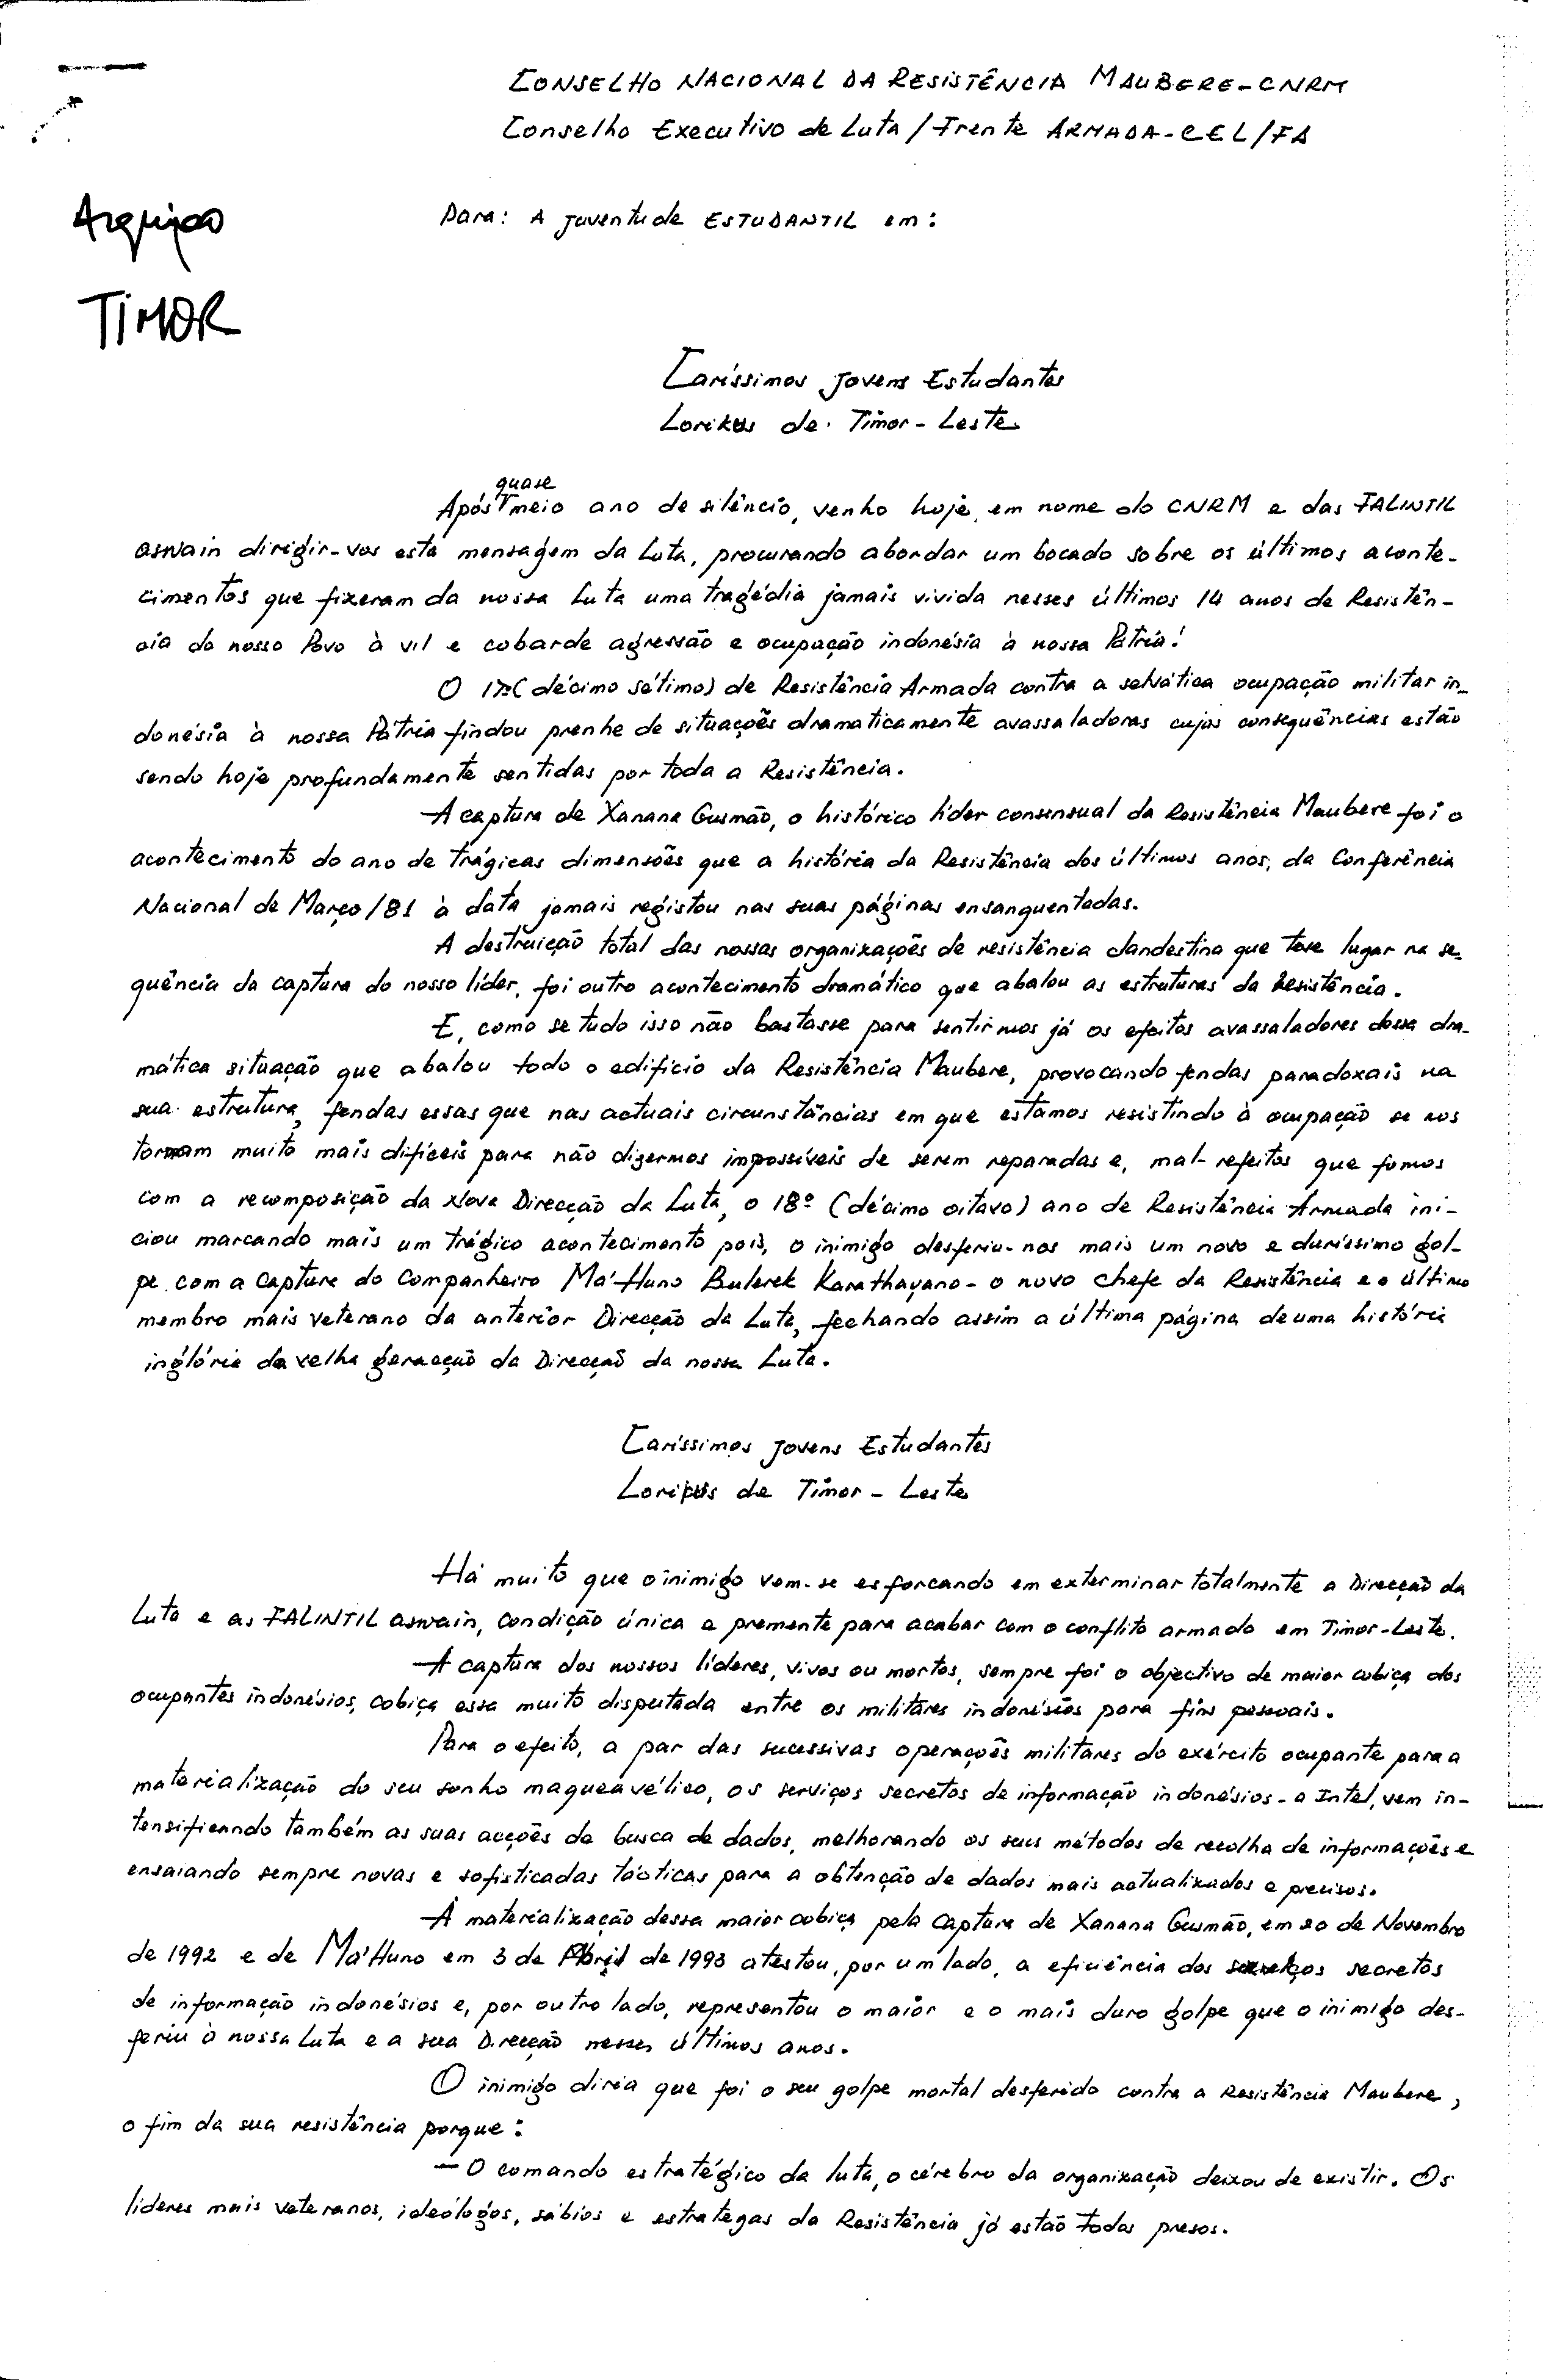 CONSELHO NACIONAL DA RESISTÊNCIA MAUBERE-CNRM
Conselho Executivo de Luta/Frente ARMADA-CEL/FA
Arquivo
TIMOR
Para: A juventude ESTUDANTIL em:
Caríssimos Jovens Estudantes
Lorikus de Timor-Leste
quase
Após meio ano de silêncio, venho hoje, em nome do CNRM e das FALINTIL
aswain dirigir-vos esta mensagem da Luta, procurando abordar um bocado sobre os últimos aconte-
cimentos que fizeram da nossa Luta uma tragédia jamais vivida nesses últimos 14 anos de Resistên-
cia do nosso Povo à vil e cobarde agressão e ocupação indonésia à nossa Pátria!
O 17º (décimo sétimo) de Resistência Armada contra a selvática ocupação militar in-
donésia à nossa Pátria findou prenhe de situações dramaticamente avassaladoras cujas consequências estão
sendo hoje profundamente sentidas por toda a Resistência.
A captura de Xanana Gusmão, o histórico líder consensual da Resistência Maubere foi o
acontecimento do ano de trágicas dimensões que a história da Resistência dos últimos anos, da Conferência
Nacional de Março/81 à data jamais registou nas suas páginas ensanguentadas.
A destruição total das nossas organizações de resistência clandestina que teve lugar na se-
quência da captura do nosso líder, foi outro acontecimento dramático que abalou as estruturas da Resistência.
E, como se tudo isso não bastasse para sentirmos já os efeitos avassaladores dessa dra-
mática situação que abalou todo o edifício da Resistência Maubere, provocando fendas paradoxais na
sua estrutura, fendas essas que nas actuais circunstâncias em que estamos resistindo à ocupação se nos
tornam muito mais difíceis para não dizermos impossíveis de serem reparadas e, mal-refeitos que fomos
com a recomposição da Nova Direcção da Luta, o 18º (décimo oitavo) ano de Resistência Armada ini-
ciou marcando mais um trágico acontecimento pois, o inimigo desferiu-nos mais um novo e duríssimo gol-
pe com a captura do Companheiro Ma'Huno Bulerek Karathayano - o novo chefe da Resistência e o último
membro mais veterano da anterior Direcção da Luta, fechando assim a última página de uma história
inglória da velha geracção da Direcção da nossa Luta.
Caríssimos Jovens Estudantes
Lorikus de Timor-Leste
Há muito que o inimigo vem-se esforcando em exterminar totalmente a Direcção da
Luta e as FALINTIL aswain, condição única e premente para acabar com o conflito armado em Timor-Leste.
A captura dos nossos líderes, vivos ou mortos, sempre foi o objectivo de maior cobiça dos
ocupantes indonésios, cobiça essa muito disputada entre os militares indonésios para fins pessoais.
Para o efeito, a par das sucessivas operações militares do exército ocupante para a
materialização do seu sonho maqueavélico, os serviços secretos de informação indonésios - a Intel, vem in-
tensificando também as suas acções de busca de dados, melhorando os seus métodos de recolha de informações e
ensaiando sempre novas e sofisticadas tácticas para a obtenção de dados mais actualizados e precisos.
A materialização dessa maior cobiça pela captura de Xanana Gusmão, em 20 de Novembro
de 1992 e de Ma'Huno em 3 de Abril de 1993 atestou, por um lado, a eficiência dos serviços secretos
de informação indonésios e, por outro lado, representou o maior e o mais duro golpe que o inimigo des-
feriu à nossa Luta e a sua Direcção nesses últimos anos.
O inimigo diria que foi o seu golpe mortal desferido contra a Resistência Maubere,
o fim da sua resistência porque:
- O comando estratégico da luta, o cérebro da organização deixou de existir. Os
líderes mais veteranos, ideólogos, sábios e estrategas da Resistência já estão todos presos.